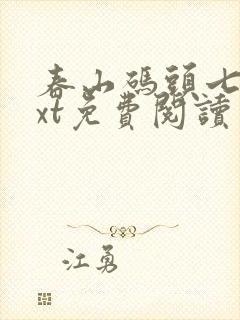 春山碼頭七
xt免費閱讀
江勇